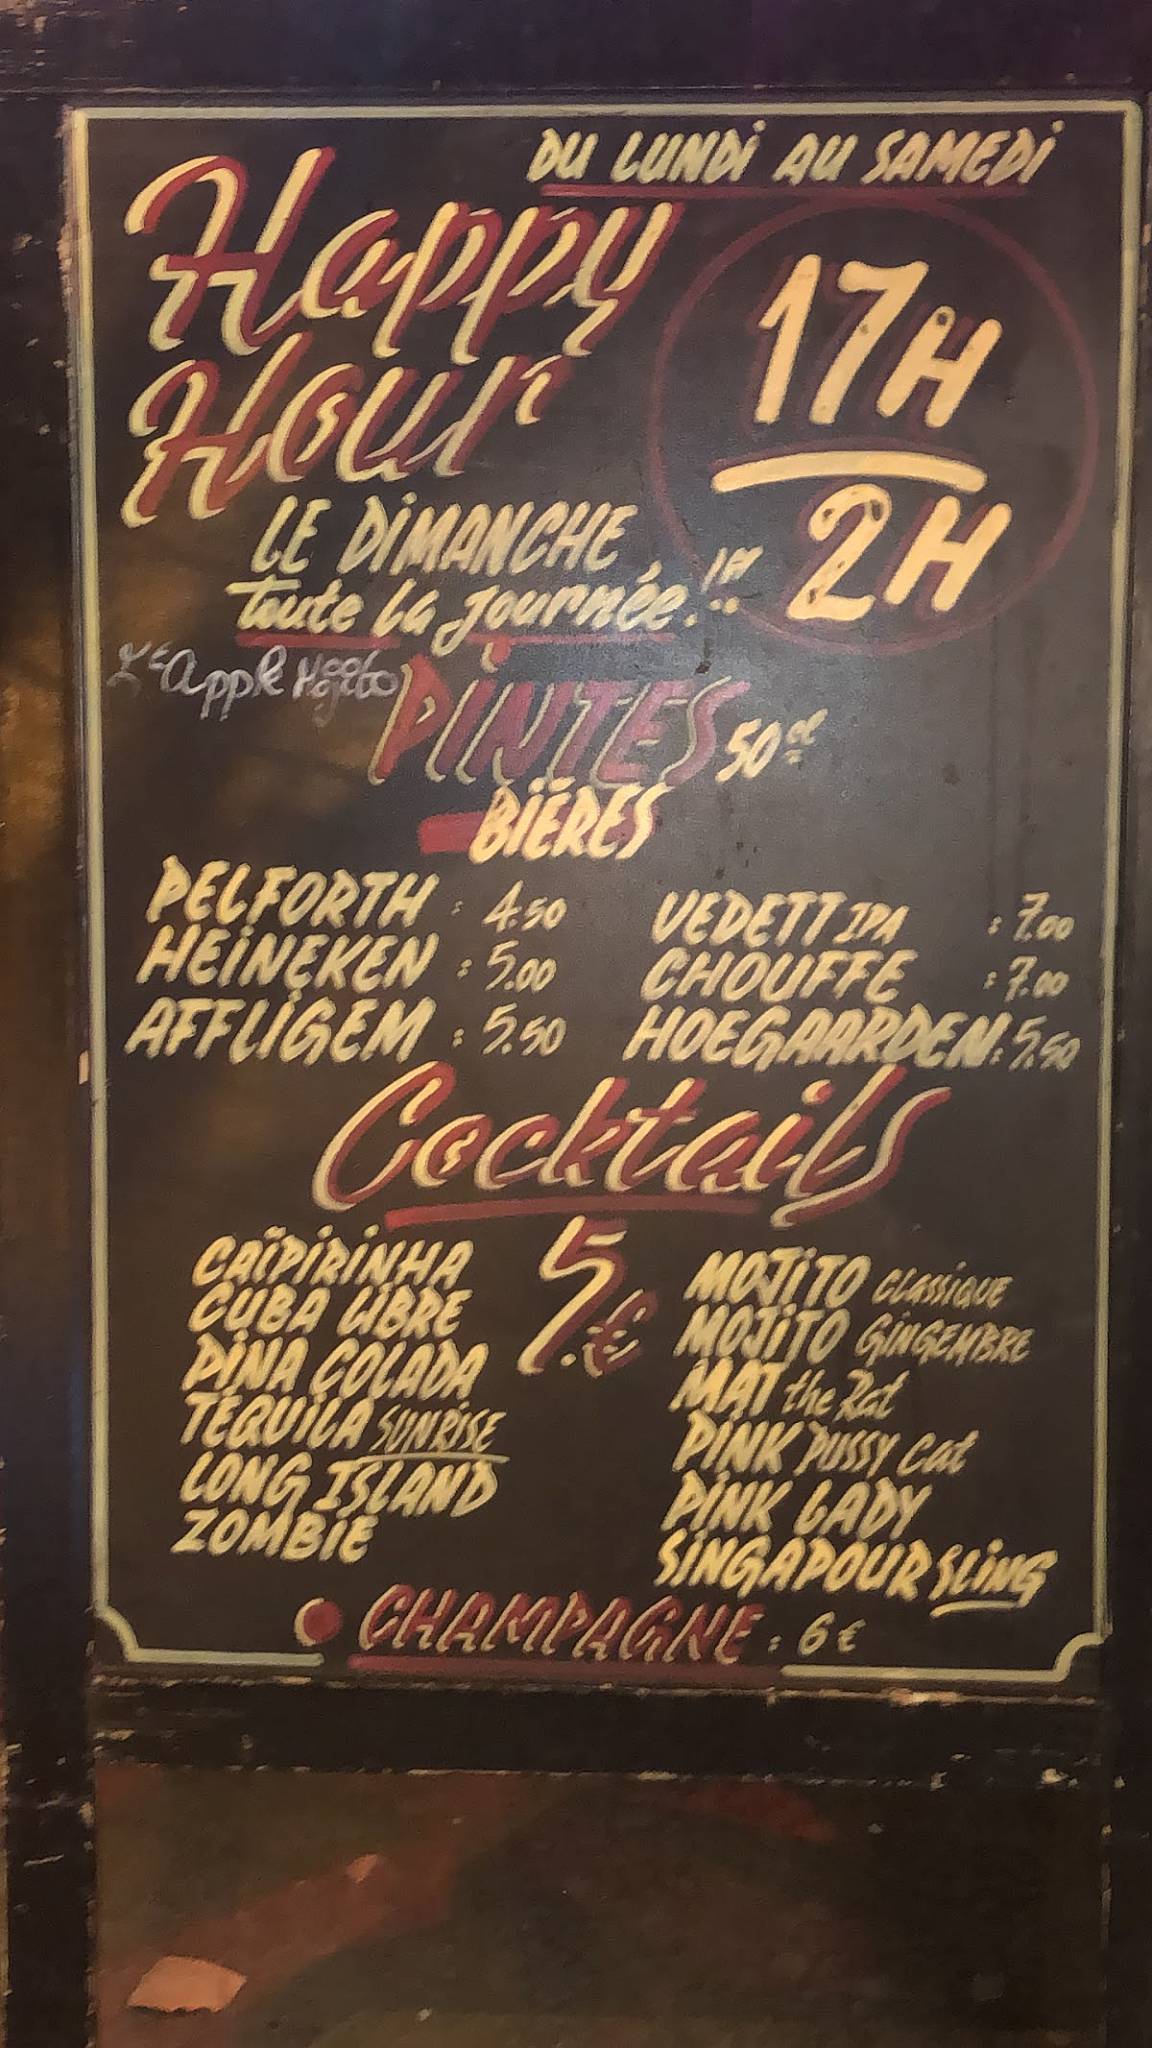 DU LUNDI AU SAMEDI
Happy
Hour
17H
2H
LE DIMANCHE
toute la journée.!!!
Apple Mojito
PINTES 50cl
BIÈRES
PELFORTH : 4.50
HEINEKEN : 5.00
AFFLIGEM : 5.50
VEDETT IPA : 7.00
CHOUFFE : 7.00
HOEGAARDEN : 5.50
Cocktails
5.€
CAÏPIRINHA
CUBA LIBRE
PINA COLADA
TEQUILA SUNRISE
LONG ISLAND
ZOMBIE
MOJITO CLASSIQUE
MOJITO GINGEMBRE
MAT the Rat
PINK PUSSY Cat
PINK LADY
SINGAPOUR SLING
CHAMPAGNE : 6 €